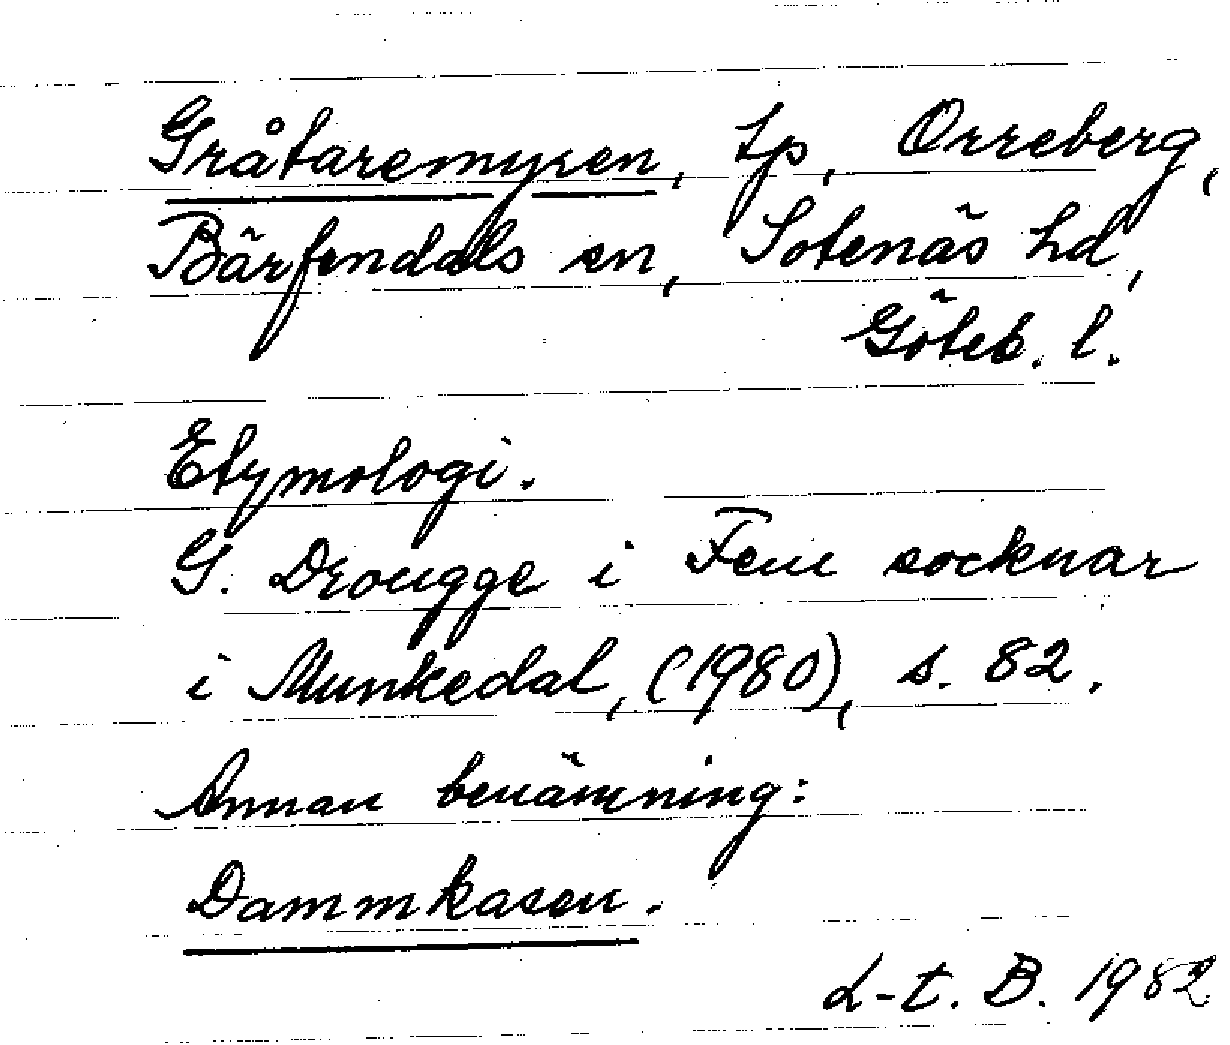 Gråtaremyren, tp, Orreberg,
Bärfendals sn, Sotenäs hd,
Göteb. l.
Etymologi.
G. Drougge i Fem socknar
i Munkedal, (1980), s. 82.
Annan benämning:
Dammkasen.
L-t. B. 1982